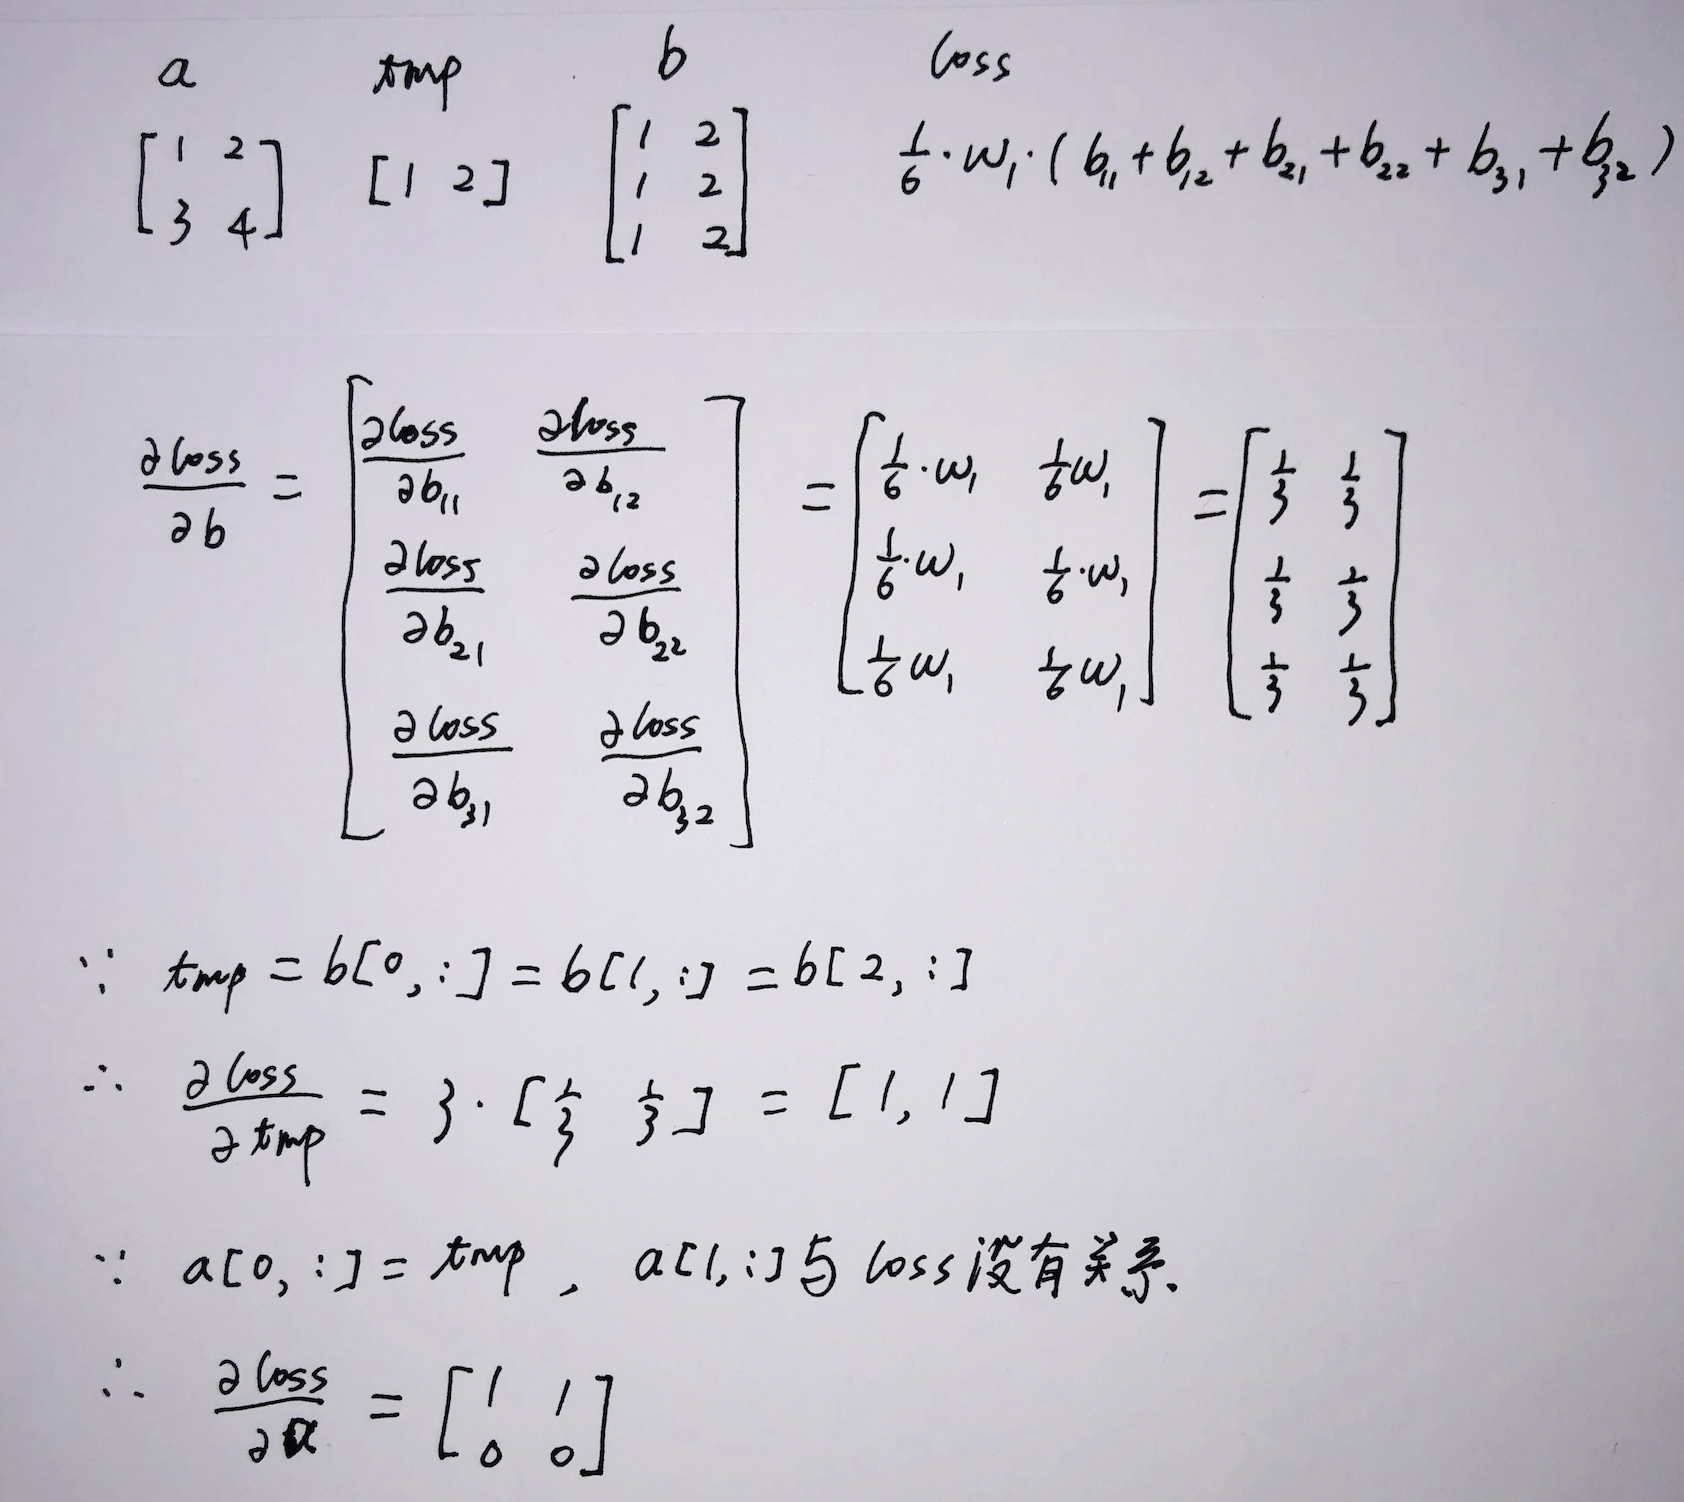 a tmp b loss
[1 2; 3 4] [1 2] [1 2; 1 2; 1 2] 1/6·w₁·(b₁₁+b₁₂+b₂₁+b₂₂+b₃₁+b₃₂)
∂loss/∂b = [∂loss/∂b₁₁ ∂loss/∂b₁₂; ∂loss/∂b₂₁ ∂loss/∂b₂₂; ∂loss/∂b₃₁ ∂loss/∂b₃₂] = [1/6·w₁ 1/6w₁; 1/6·w₁ 1/6·w₁; 1/6w₁ 1/6w₁] = [1/3 1/3; 1/3 1/3; 1/3 1/3]
∵ tmp = b[0,:] = b[1,:] = b[2,:]
∴ ∂loss/∂tmp = 3·[1/3 1/3] = [1,1]
∵ a[0,:] = tmp, a[1,:]与loss没有关系.
∴ ∂loss/∂a = [1 1; 0 0]